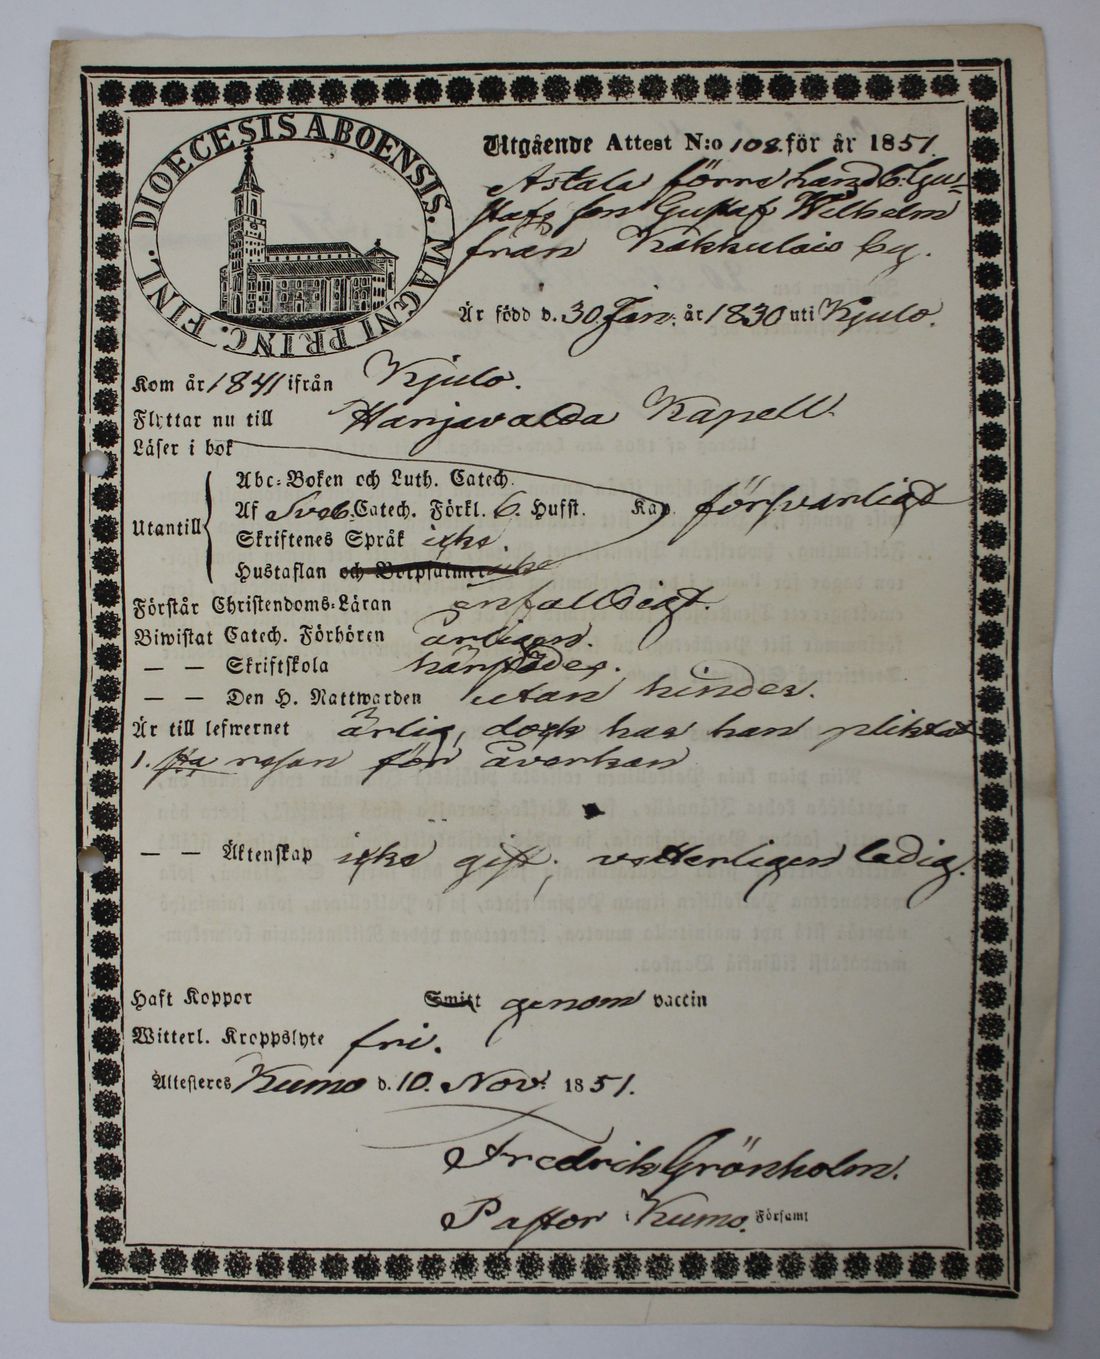 DIOECESIS ABOENSIS. MAGNI PRINC. FINL.
Utgående Attest N:o 108. för år 1851.
Astala förra handb. Gu-
stafs son Gustaf Wilhelm
från Kakkulais by.
Är född d. 30 Jan: år 1830 uti Kjulo.
Kom år 1841 ifrån Kjulo.
Flyttar nu till Harjavalda Kapell.
Läser i bok
Abc-Boken och Luth. Catech.
Utantill Af Sveb. Catech. Förkl. 6. Hufst. Kap. försvarligt
Skriftenes Språk icke.
Hustaflan och Botpsalmerne icke
Förstår Christendoms-Läran enfalldigt.
Biwistat Catech. Förhören årligen.
— — Skriftskola härstädes.
— — Den H. Nattwarden utan hinder.
Är till lefwernet ärlig, dock har han pliktat
1.sta resan för åverkan
— — Äktenskap icke gift, vetterligen ledig.
Haft Koppor Smitt genom vaccin
Witterl. Kroppslyte fri.
Attesteres Kumo d. 10. Nov: 1851.
Fredrik Grönholm.
Pastor i Kumo. Församl